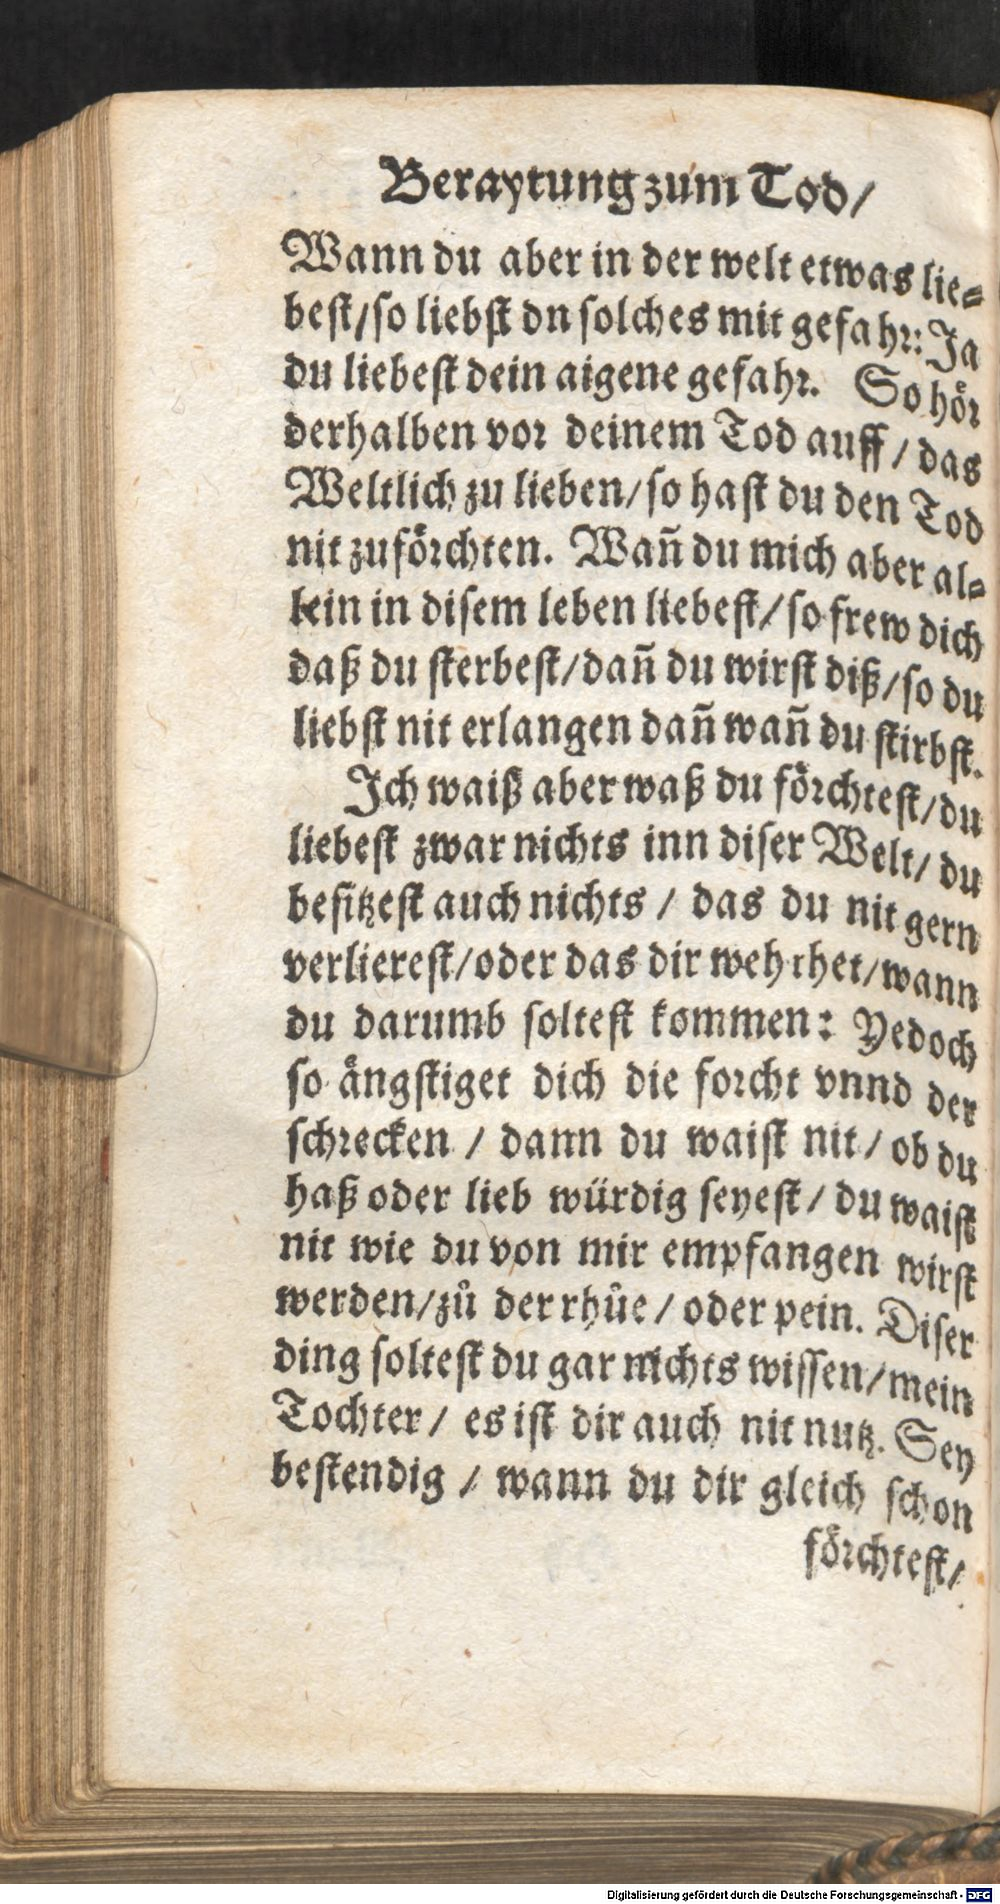 Beraytung zum Tod/
Wann du aber in der welt etwas lie⸗
best/so liebst dn solches mit gefahr: Ja
du liebest dein aigene gefahr. So hör
derhalben vor deinem Tod auff/ das
Weltlich zu lieben/so hast du den Tod
nit zuförchten. Wañ du mich aber al⸗
lein in disem leben liebest/ so frew dich
daß du sterbest/dañ du wirst diß/so du
liebst nit erlangen dañ wañ du stirbst.
Ich waiß aber waß du förchtest/du
liebest zwar nichts inn diser Welt/ du
besitzest auch nichts / das du nit gern
verlierest/oder das dir weh thet/wann
du darumb soltest kommen: Yedoch
so ängstiget dich die forcht vnnd der
schrecken / dann du waist nit/ ob du
haß oder lieb würdig seyest/ du waist
nit wie du von mir empfangen wirst
werden/zů der rhůe/ oder pein. Diser
ding soltest du gar nichts wissen/mein
Tochter/ es ist dir auch nit nutz. Sey
bestendig / wann du dir gleich schon
förchtest/
Digitalisierung gefördert durch die Deutsche Forschungsgemeinschaft - DFG